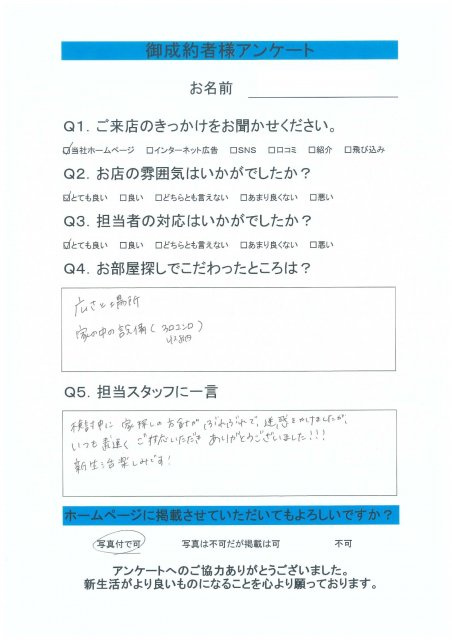 御成約者様アンケート
お名前
Q1. ご来店のきっかけをお聞かせください。
☑当社ホームページ □インターネット広告 □SNS □口コミ □紹介 □飛び込み
Q2. お店の雰囲気はいかがでしたか？
☑とても良い □良い □どちらとも言えない □あまり良くない □悪い
Q3. 担当者の対応はいかがでしたか？
☑とても良い □良い □どちらとも言えない □あまり良くない □悪い
Q4. お部屋探しでこだわったところは？
広さと場所
家の中の設備(3口コンロ)
収納
Q5. 担当スタッフに一言
検討中に家探しの方針がぶれぶれで、迷惑をかけましたが、
いつも素速くご対応いただきありがとうございました!!!
新生活楽しみです!
ホームページに掲載させていただいてもよろしいですか？
写真付で可 写真は不可だが掲載は可 不可
アンケートへのご協力ありがとうございました。
新生活がより良いものになることを心より願っております。